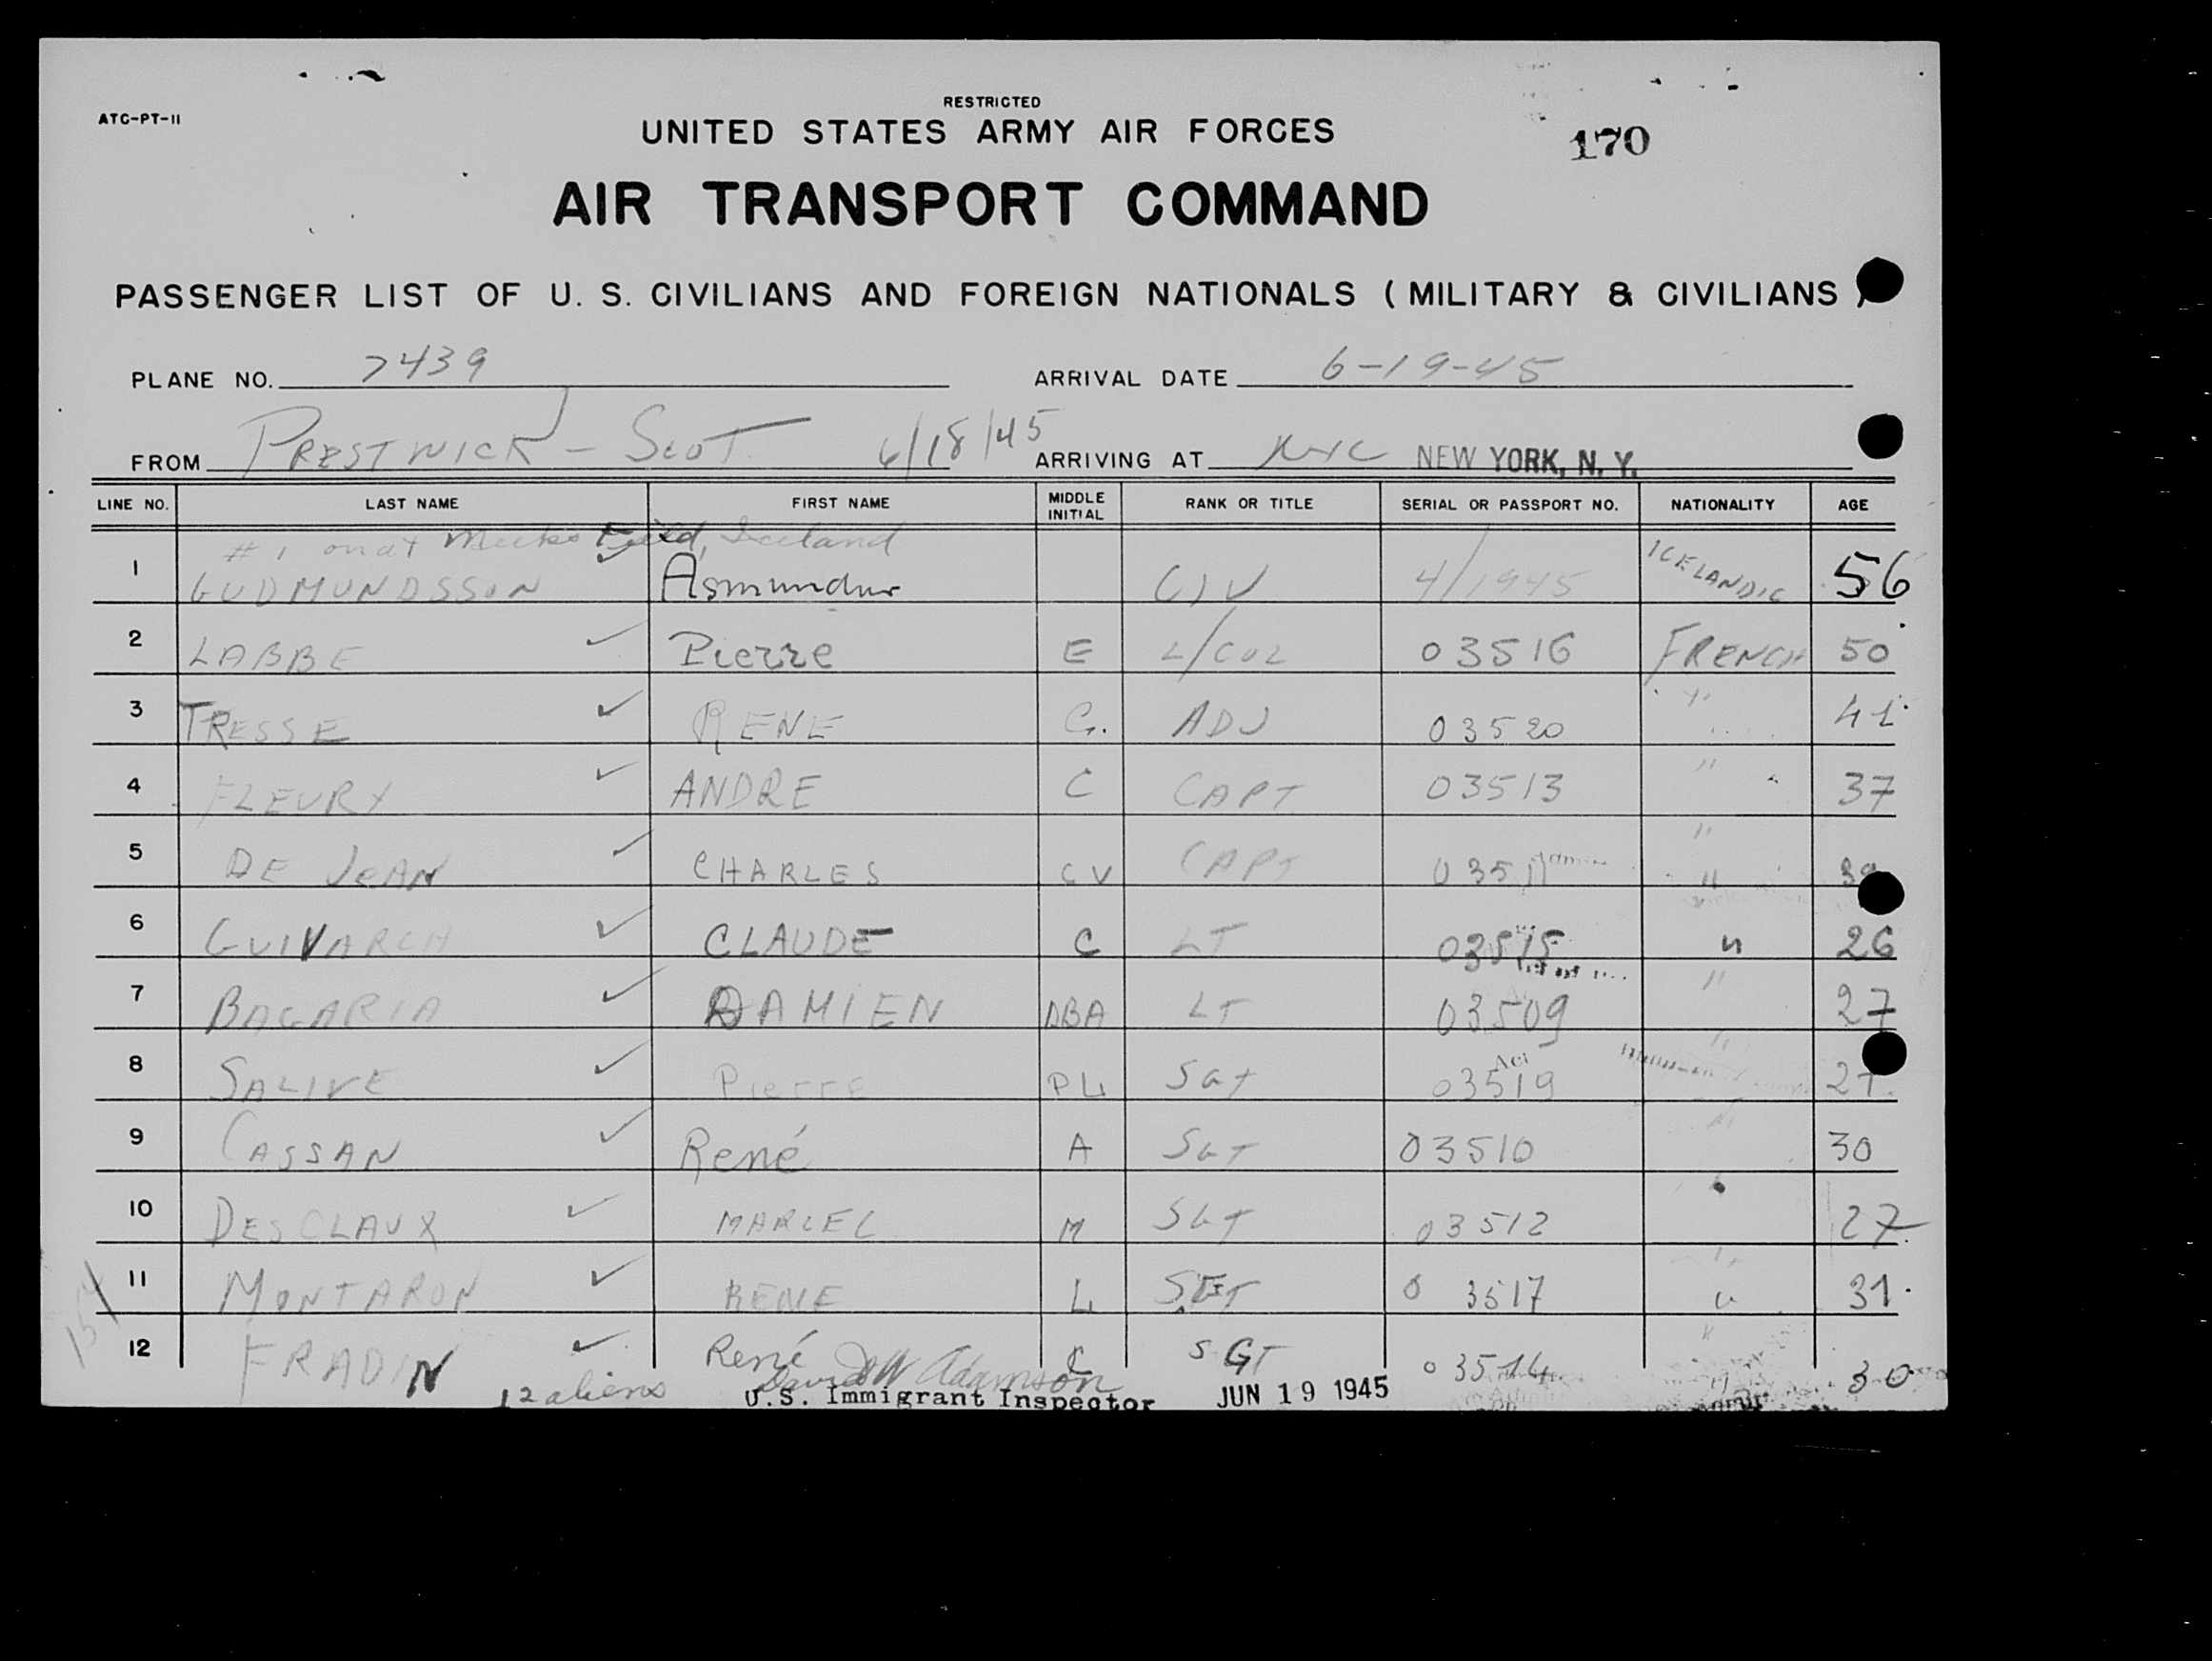 RESTRICTED
ATC-PT-II
UNITED STATES ARMY AIR FORCES
170
AIR TRANSPORT COMMAND
PASSENGER LIST OF U. S. CIVILIANS AND FOREIGN NATIONALS ( MILITARY & CIVILIANS )
PLANE NO. 7439 ARRIVAL DATE 6-19-45
FROM PRESTWICK - SCOT 6/18/45 ARRIVING AT NYC NEW YORK, N. Y.
LINE NO. LAST NAME FIRST NAME MIDDLE INITIAL RANK OR TITLE SERIAL OR PASSPORT NO. NATIONALITY AGE
# 1 on at Meeks Field, Iceland
1 GUDMUNDSSON ✓ Asmundur CIV 4/1945 ICELANDIC 56
2 LABBE ✓ Pierre E L/COL 03516 FRENCH 50
3 TRESSE ✓ RENE G. ADJ 03520 " 41
4 FLEURY ✓ ANDRE C CAPT 03513 " 37
5 DE JEAN ✓ CHARLES CV CAPT 03511 "
6 GUIVARCH ✓ CLAUDE C LT 03515 " 26
7 BAGARIA ✓ DAMIEN DBA LT 03509 " 27
8 SALIVE ✓ Pierre PL SGT 03519 " 27
9 CASSAN ✓ René A SGT 03510 " 30
10 DESCLAUX ✓ MARCEL M SGT 03512 27
11 MONTARON ✓ RENE L SGT 03517 " 31
12 FRADIN ✓ René C SGT 03514 " 30
12 aliens David W Adamson
U.S. Immigrant Inspector JUN 19 1945